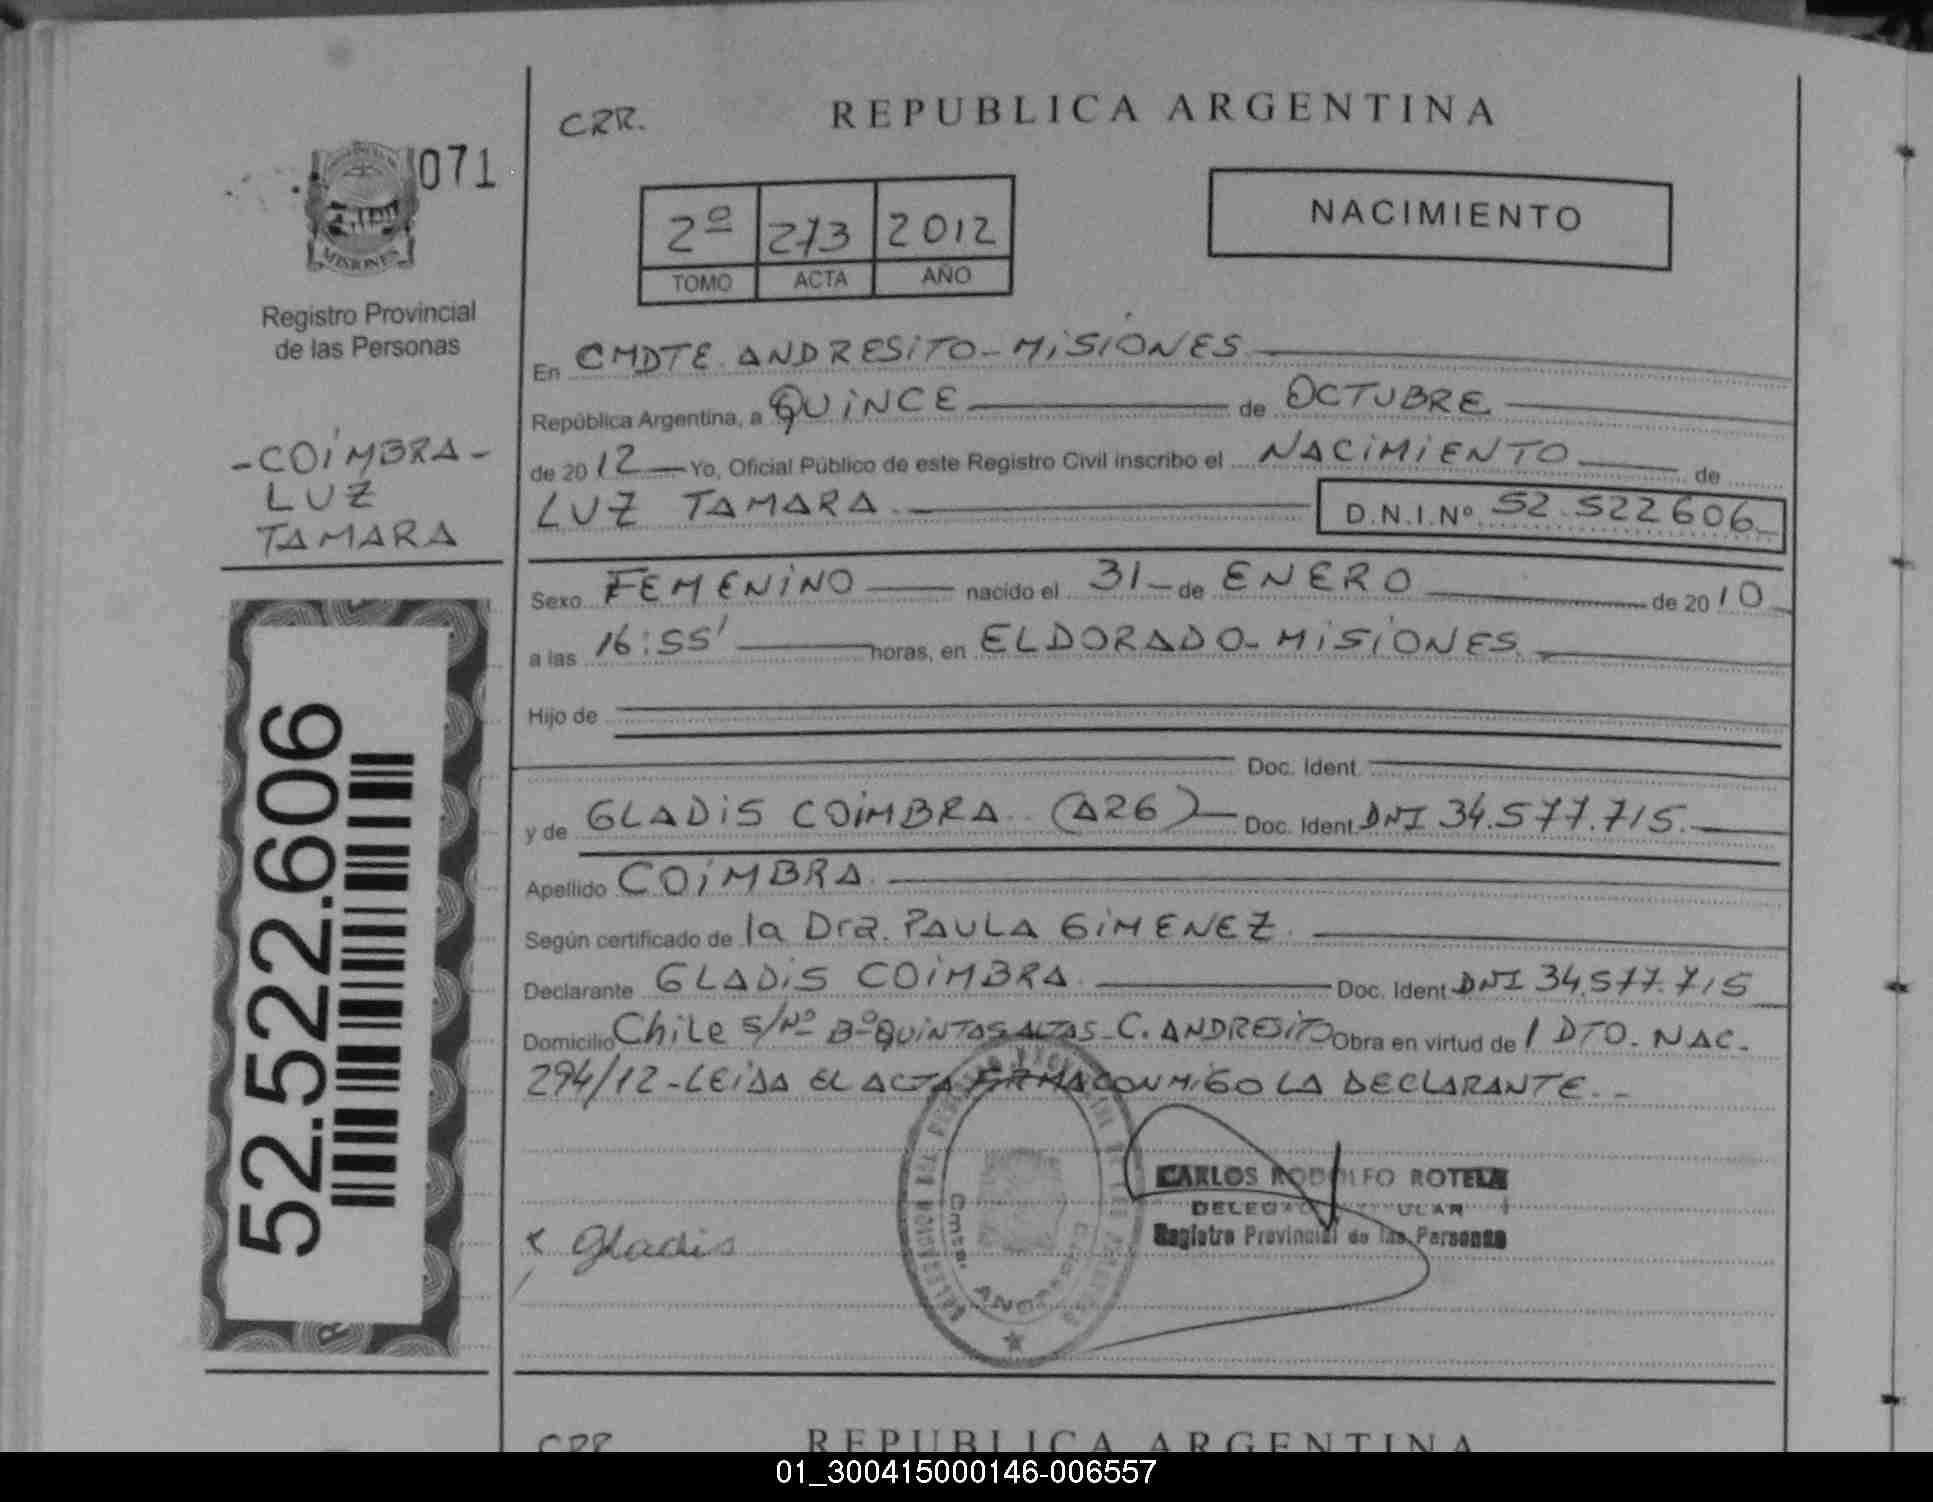 CRR.
REPUBLICA ARGENTINA
071
MISIONES
Registro Provincial
de las Personas
2º 273 2012
TOMO ACTA AÑO
NACIMIENTO
En CMDTE. ANDRESITO - MISIONES
República Argentina, a QUINCE de OCTUBRE
de 2012 Yo, Oficial Público de este Registro Civil inscribo el NACIMIENTO de
LUZ TAMARA. D.N.I.Nº 52.522606
-COIMBRA-
LUZ
TAMARA
Sexo FEMENINO nacido el 31 de ENERO de 2010
a las 16:55' horas, en ELDORADO - MISIONES.
Hijo de
Doc. Ident.
y de GLADIS COIMBRA. (ARG) Doc. Ident. DNI 34.577.715.
Apellido COIMBRA.
Según certificado de la Dra. PAULA GIMENEZ.
Declarante GLADIS COIMBRA. Doc. Ident. DNI 34.577.715
Domicilio Chile S/Nº Bº QUINTAS ALTAS - C. ANDRESITO Obra en virtud de 1 DTO. NAC.
294/12 - LEIDA EL ACTA FIRMA CONMIGO LA DECLARANTE. -
52.522.606
CARLOS RODOLFO ROTELA
Registro Provincial de las Personas
x Gladis
CRR
REPUBLICA ARGENTINA
01_300415000146-006557